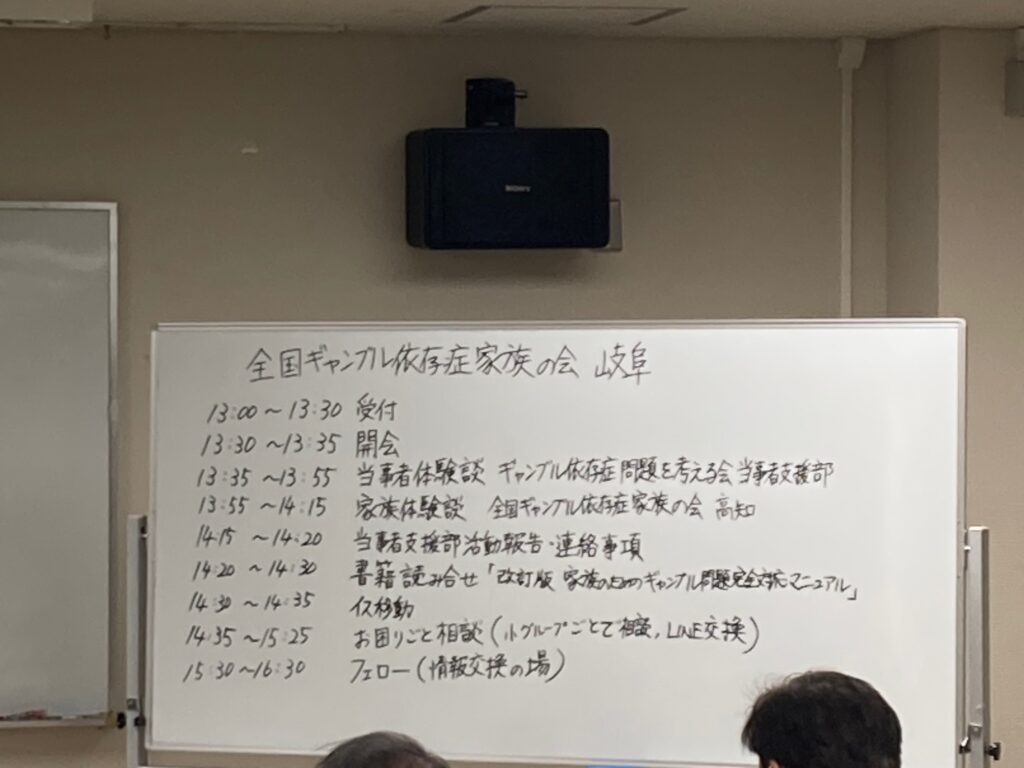 SONY
全国ギャンブル依存症家族の会 岐阜
13:00 〜 13:30 受付
13:30 〜 13:35 開会
13:35 〜 13:55 当事者体験談 ギャンブル依存症問題を考える会 当事者支援部
13:55 〜 14:15 家族体験談 全国ギャンブル依存症家族の会 高知
14:15 〜 14:20 当事者支援部活動報告・連絡事項
14:20 〜 14:30 書籍読み合せ「改訂版 家族のためのギャンブル問題完全対応マニュアル」
14:30 〜 14:35 イス移動
14:35 〜 15:25 お困りごと相談(小グループごとで相談, LINE交換)
15:30 〜 16:30 フェロー(情報交換の場)